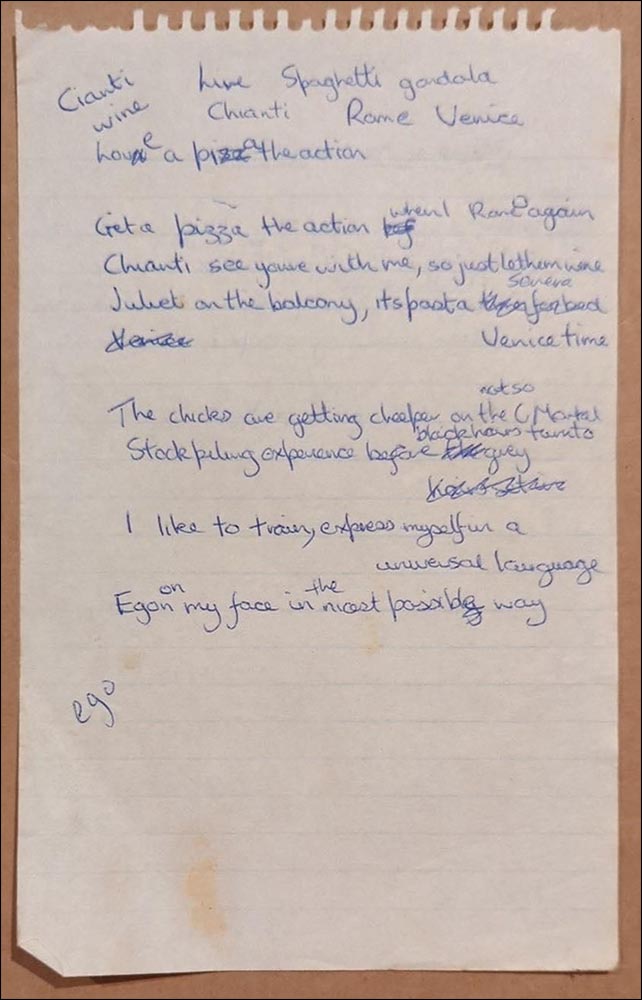 Cianti Live Spaghetti gondola
wine Chianti Rome Venice
have a pizza the action
Get a pizza the action when I Rome again
Chianti see youre with me, so just let them wine
Juliet on the balcony, its pasta
Venice Venice time
not so
The chicks are getting cheeper on the C
black hairs turn to
Stockpiling experience before grey
I like to train, express myself in a
universal language
on the
Ego my face in nicest possible way
ego